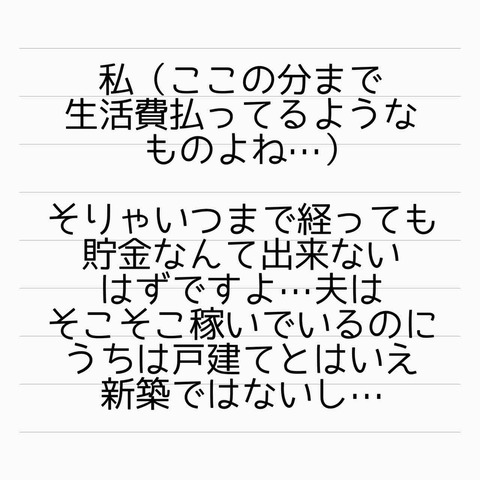 私（ここの分まで
生活費払ってるような
ものよね…）
そりゃいつまで経っても
貯金なんて出来ない
はずですよ…夫は
そこそこ稼いでいるのに
うちは戸建てとはいえ
新築ではないし…